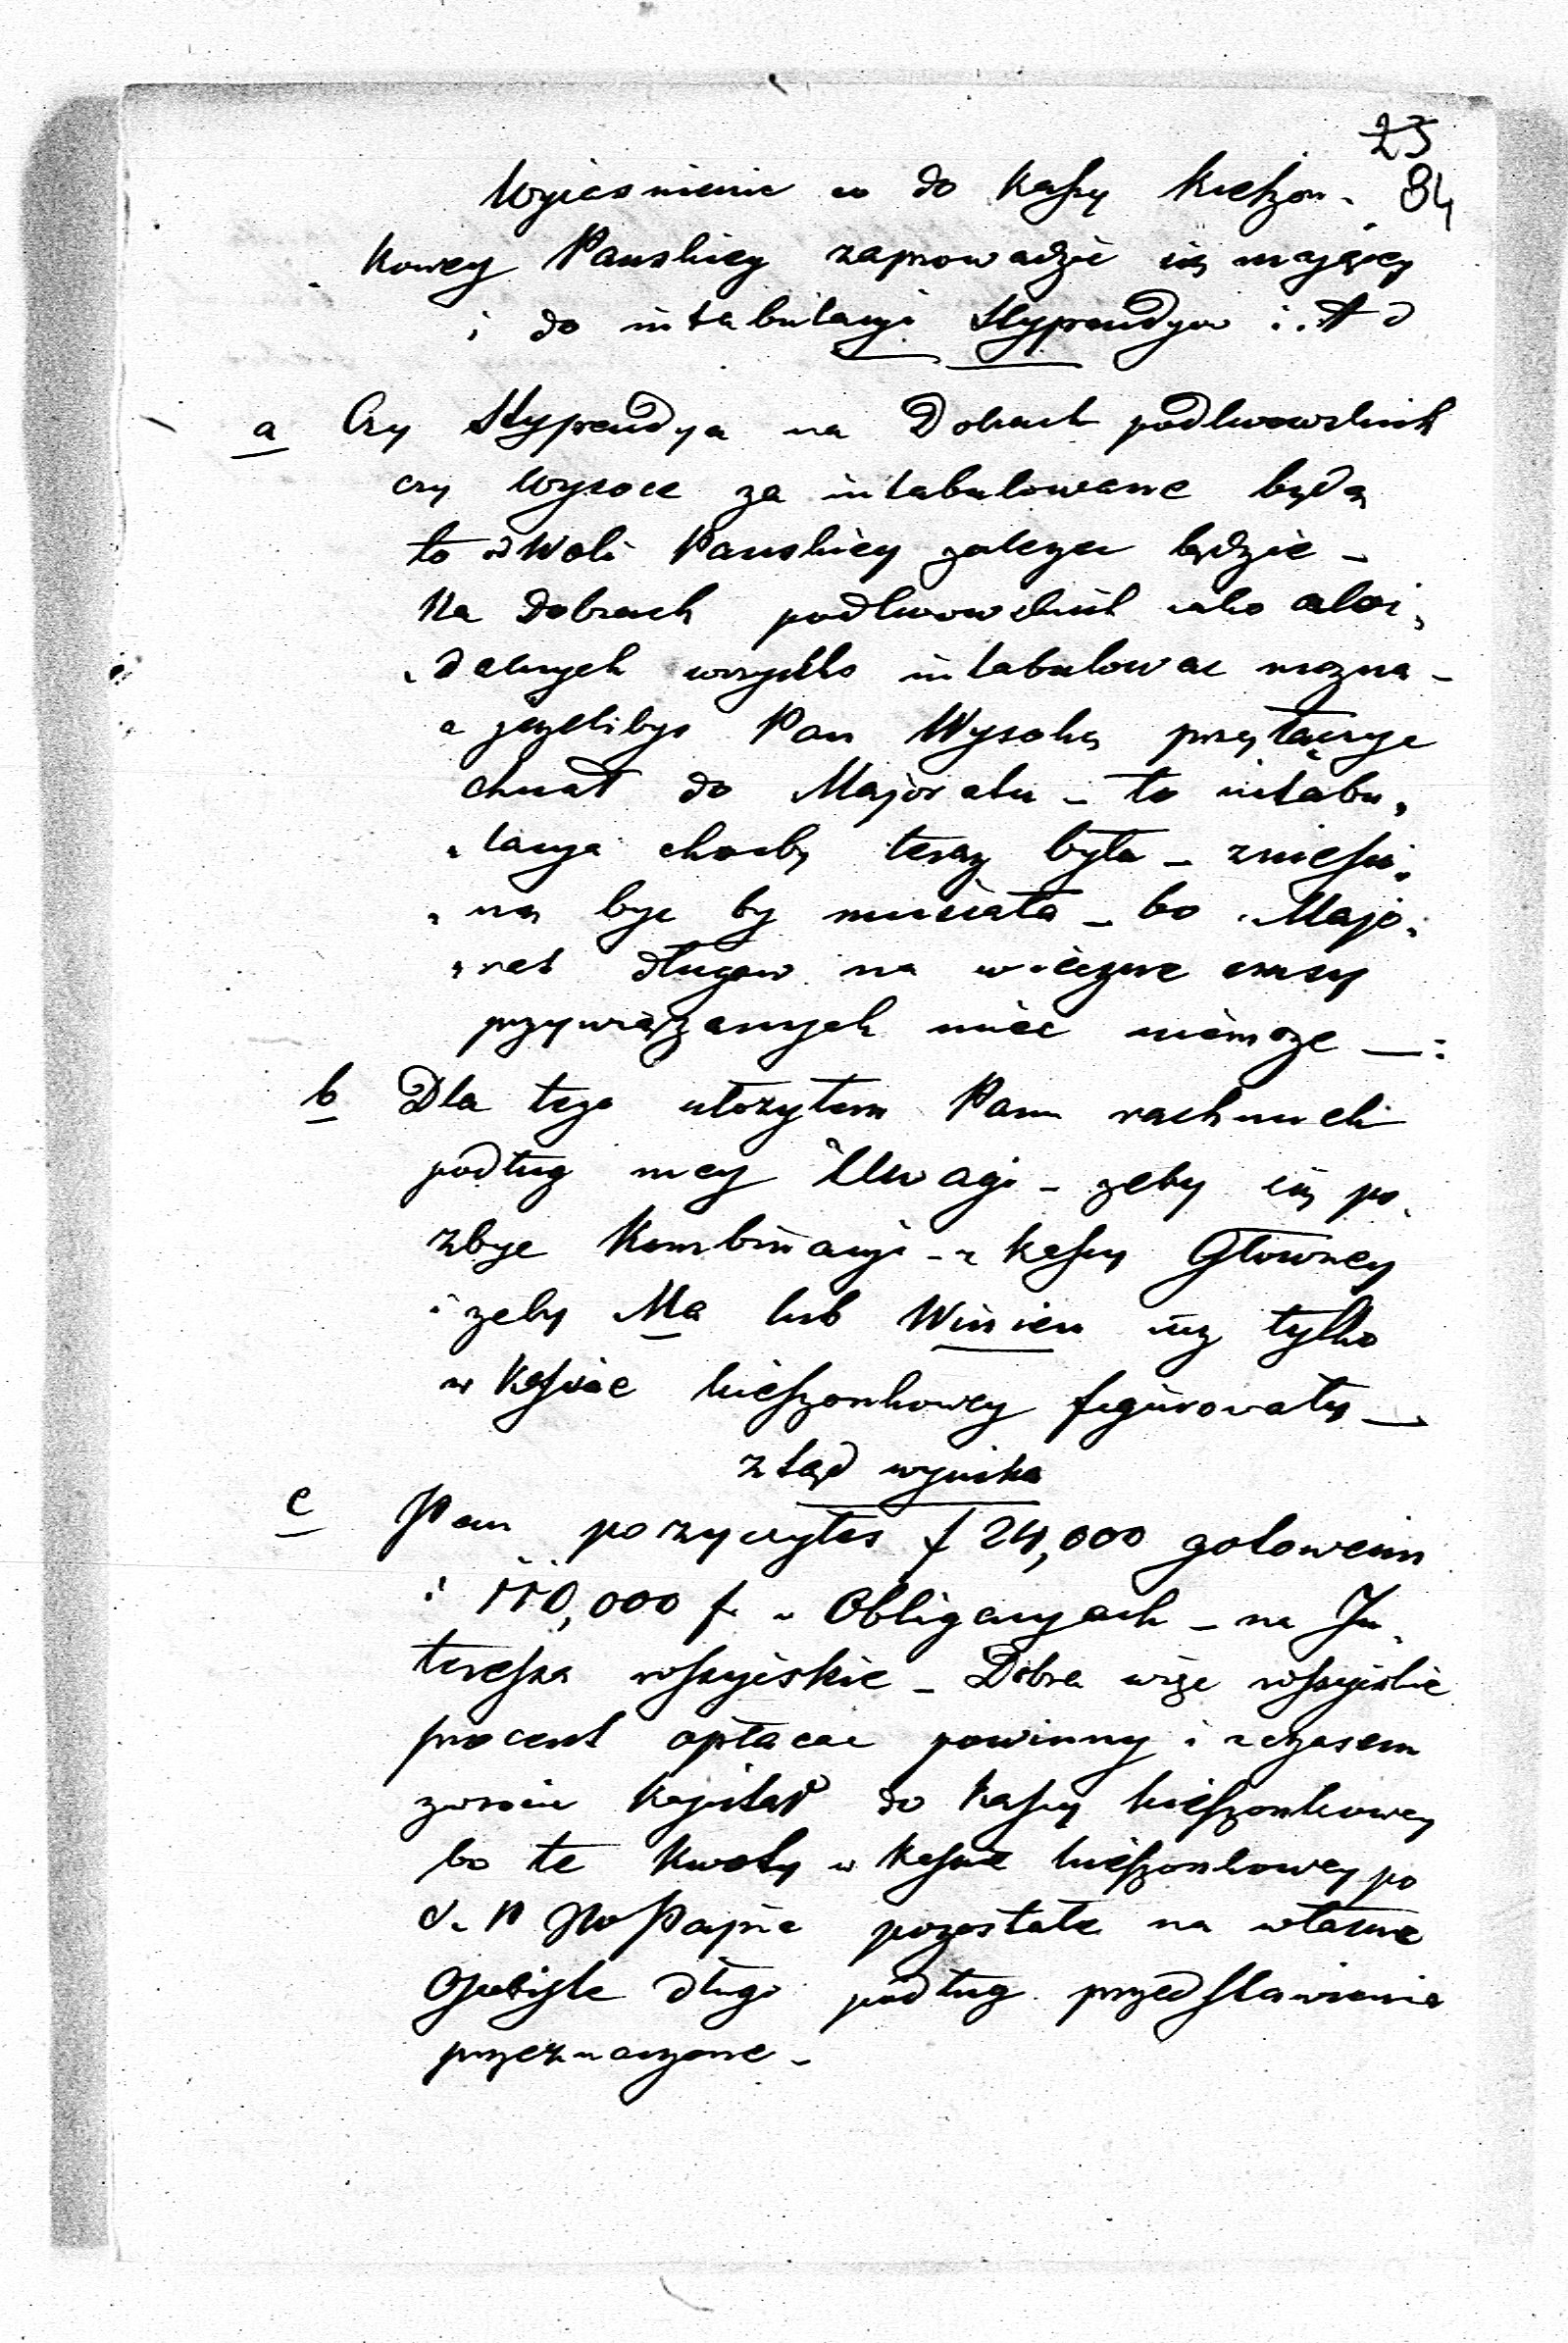 25
84
Wyiasnienie co do Kassy kieszon-
kowey Panskiey zaprowadzic się maiącey
i do intabulacyi Stypendyow i.t.d
a Czy Stypendya na Dobrach podlwowskich
czy Wysoce za intabulowane będą
to od Woli Panskiey zalezec będzie _
Na Dobrach podlwowskich iako aloi„
„dalnych wszystko intabulowac mozna _
a jezelibys Pan Wysokę przyłączyc
chciał do Majoratu _ to intabu„
„lacya chocby teraz była _ zniesio„
„ną byc by musiała _ bo Majo„
„rat długow na wieczne czasy
przywiązanych miec niemoze _:
b Dla tego ułozyłem Panu rachunek
podług mey Uwagi _ zeby się po„
zbyc Kombinacyi _ z Kassy Głowney
i zeby Ma lub Winien iuz tylko
w Kassie kieszonkowey figurowały _
z tąd wynika
c Pan pozyczyłes f 24,000 gotowemi
i 110,000 f. w Obligacyach _ na In„
teressa rossyiskie _ Dobra więc rossyiskie
procent opłacac powinny i z czasem
zwrocic Kapitał do Kassy kieszonkowey
bo te Kwoty w Kassie kieszonkowey po
pozostałe na własne
Osobiste długi podług przedstawienia
przeznaczone _